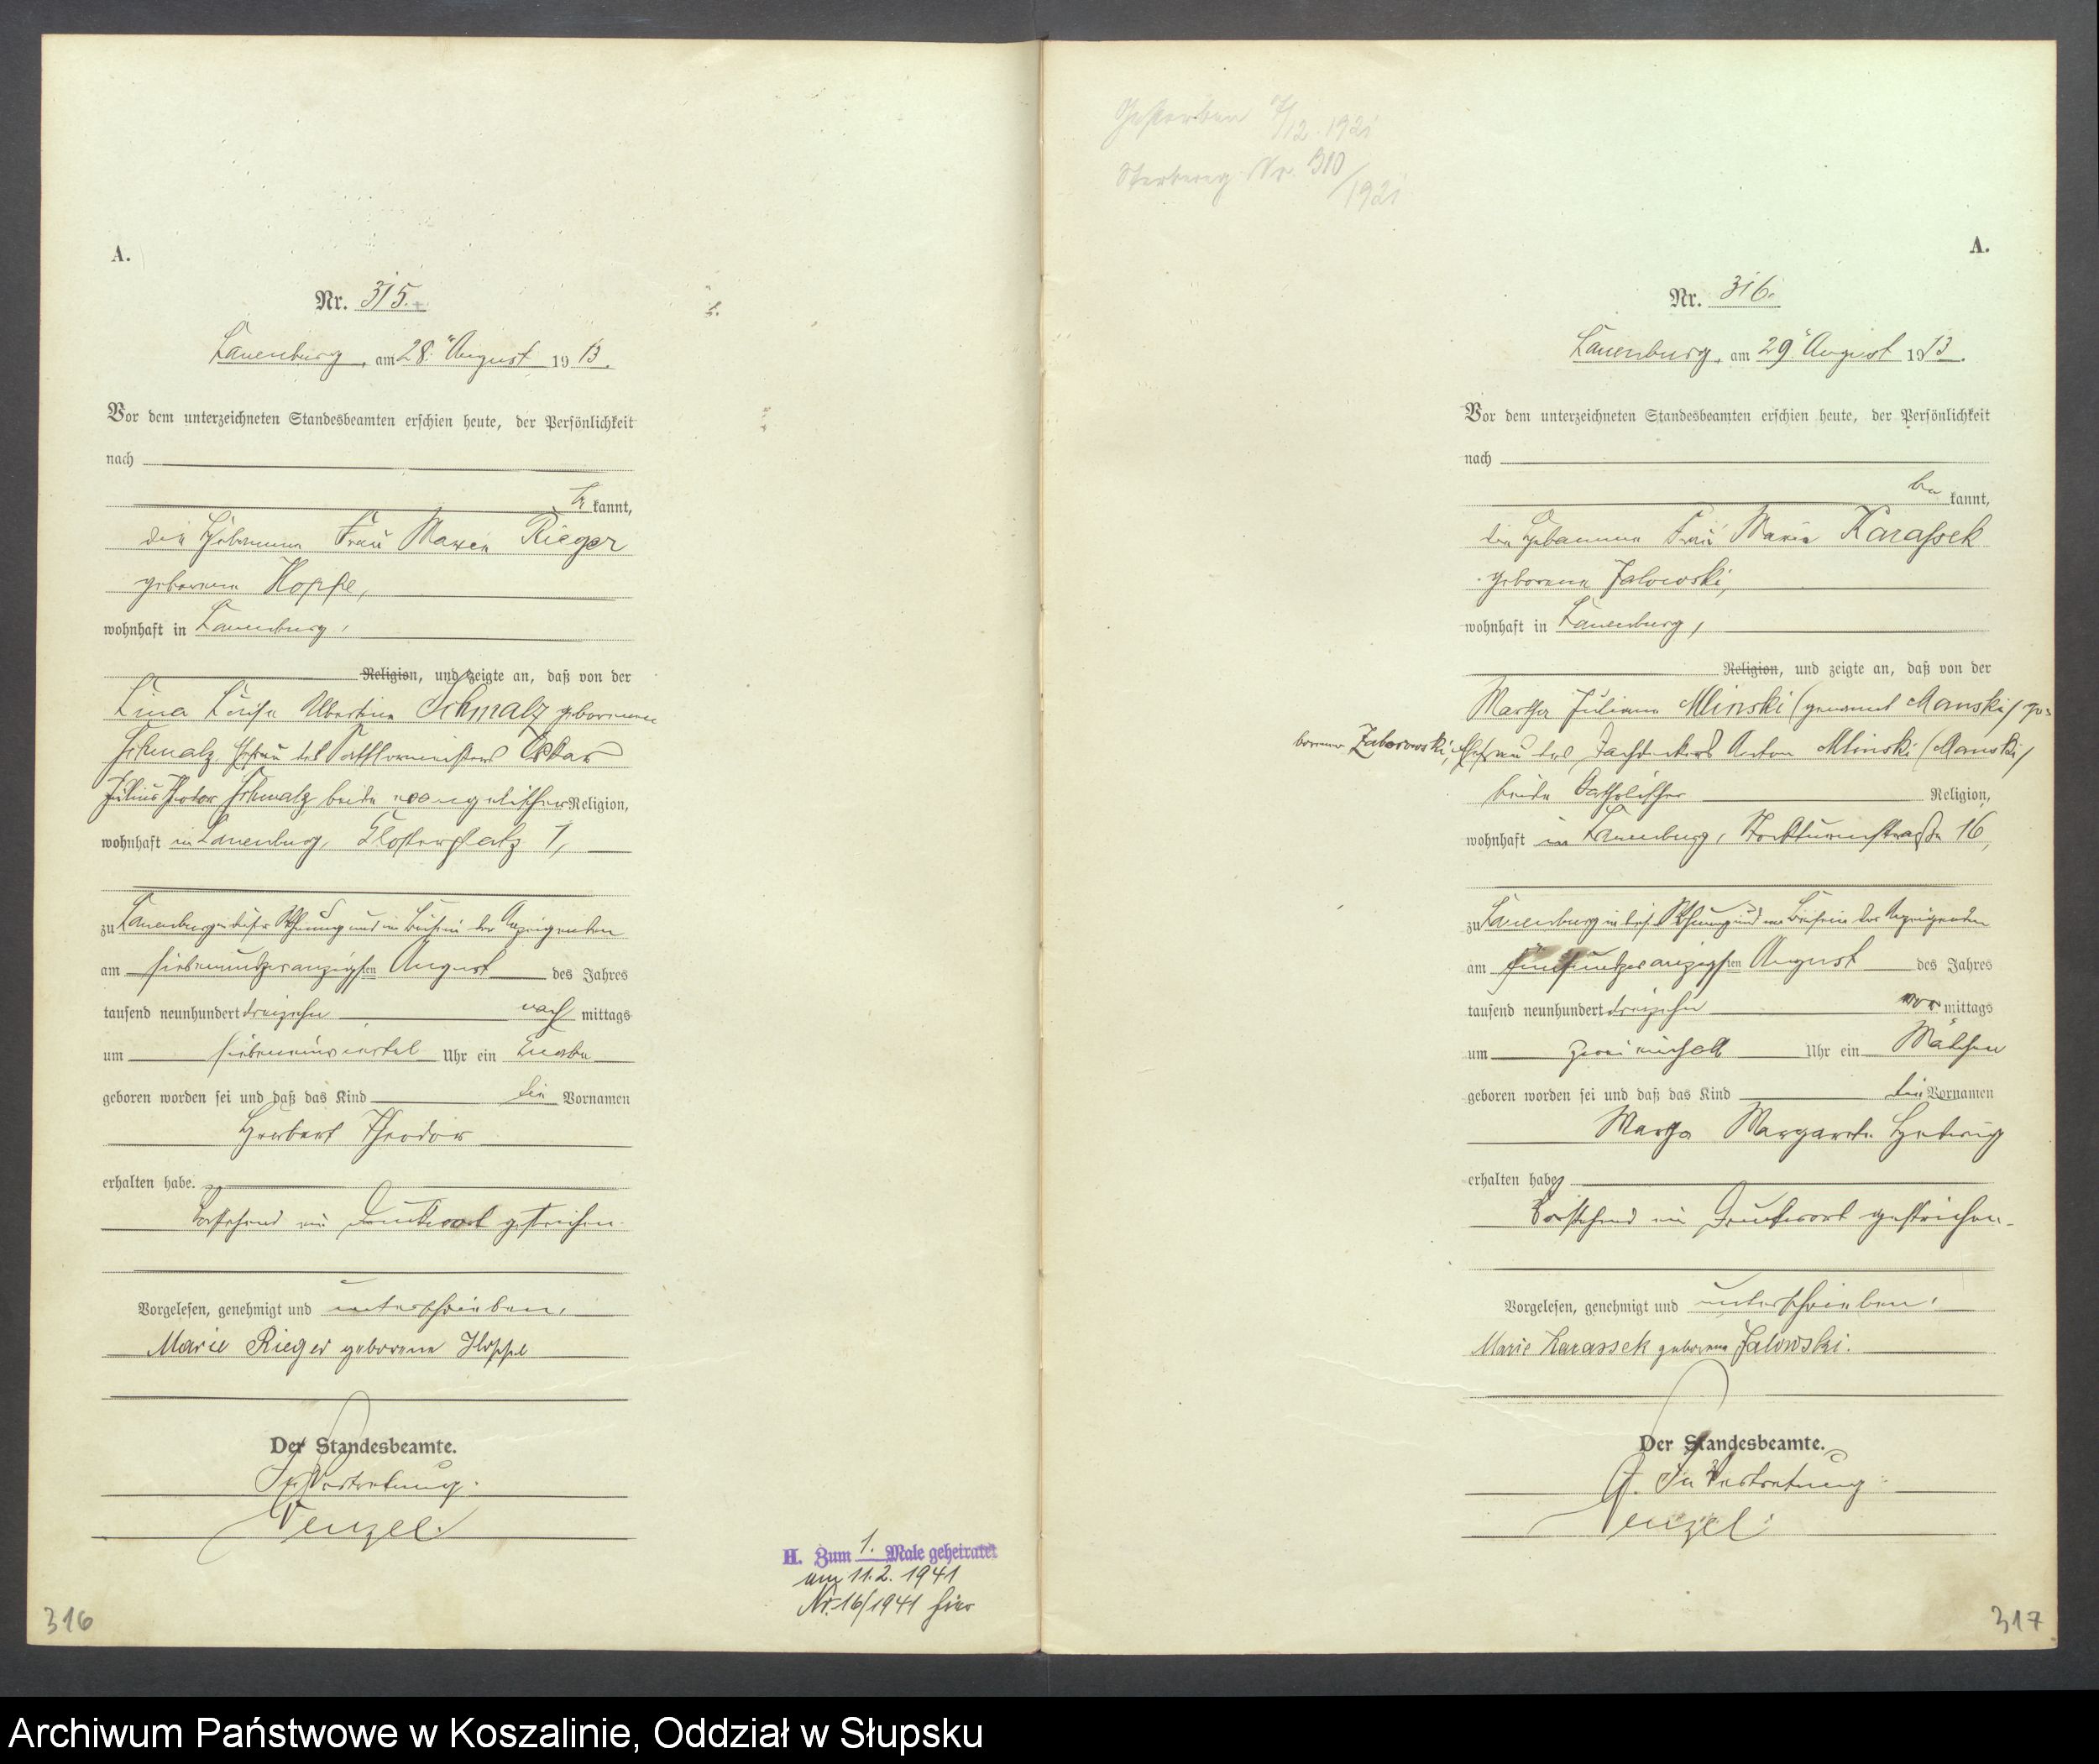 A.
Nr. 315.
Lauenburg, am 28. August 1913.
Vor dem unterzeichneten Standesbeamten erschien heute, der Persönlichkeit
nach
be kannt,
die Hebamme Frau Marie Rieger
geborene Hoppe,
wohnhaft in Lauenburg,
Religion, und zeigte an, daß von der
Lina Luise Albertine Schmalz geborenen
Schmalz, Ehefrau des Oskar
Julius Theodor Schmalz, beide evangelischer Religion,
wohnhaft in Lauenburg, Klosterplatz 1,
zu Lauenburg in dieser Wohnung und im Beisein der Anzeigenden
am siebenundzwanzigsten August des Jahres
tausend neunhundert dreizehn nach mittags
um sieben einviertel Uhr ein Knabe
geboren worden sei und daß das Kind die Vornamen
Herbert Theodor
erhalten habe.
Vorstehend ein Druckwort gestrichen.
Vorgelesen, genehmigt und unterschrieben.
Marie Rieger geborene Hoppe
Der Standesbeamte.
In Vertretung.
Wenzel.
H. Zum 1. Male geheiratet
am 11.2.1941
Nr. 16/1941 hier
316
Gestorben 7/12.1921
Sterbereg Nr. 310
/1921
A.
Nr. 316.
Lauenburg, am 29. August 1913.
Vor dem unterzeichneten Standesbeamten erschien heute, der Persönlichkeit
nach
be kannt,
die Hebamme Frau Marie Karassek
geborene Jalowski,
wohnhaft in Lauenburg,
Religion, und zeigte an, daß von der
Martha Juliane Mlinski (genannt Manski) ge-
borenen Zaborowski, Ehefrau des Dachdeckers Anton Mlinski (Manski)
beide katholischer Religion,
wohnhaft in Lauenburg, Stockturmstraße 16,
zu Lauenburg in dies. Wohnung und im Beisein der Anzeigenden
am fünfundzwanzigsten August des Jahres
tausend neunhundert dreizehn vor mittags
um zwei einhalb Uhr ein Mädchen
geboren worden sei und daß das Kind die Vornamen
Martha Margarete Hedwig
erhalten habe.
Vorstehend ein Druckwort gestrichen.
Vorgelesen, genehmigt und unterschrieben.
Marie Karassek geborene Jalowski.
Der Standesbeamte.
In Vertretung
Wenzel.
317
Archiwum Państwowe w Koszalinie, Oddział w Słupsku